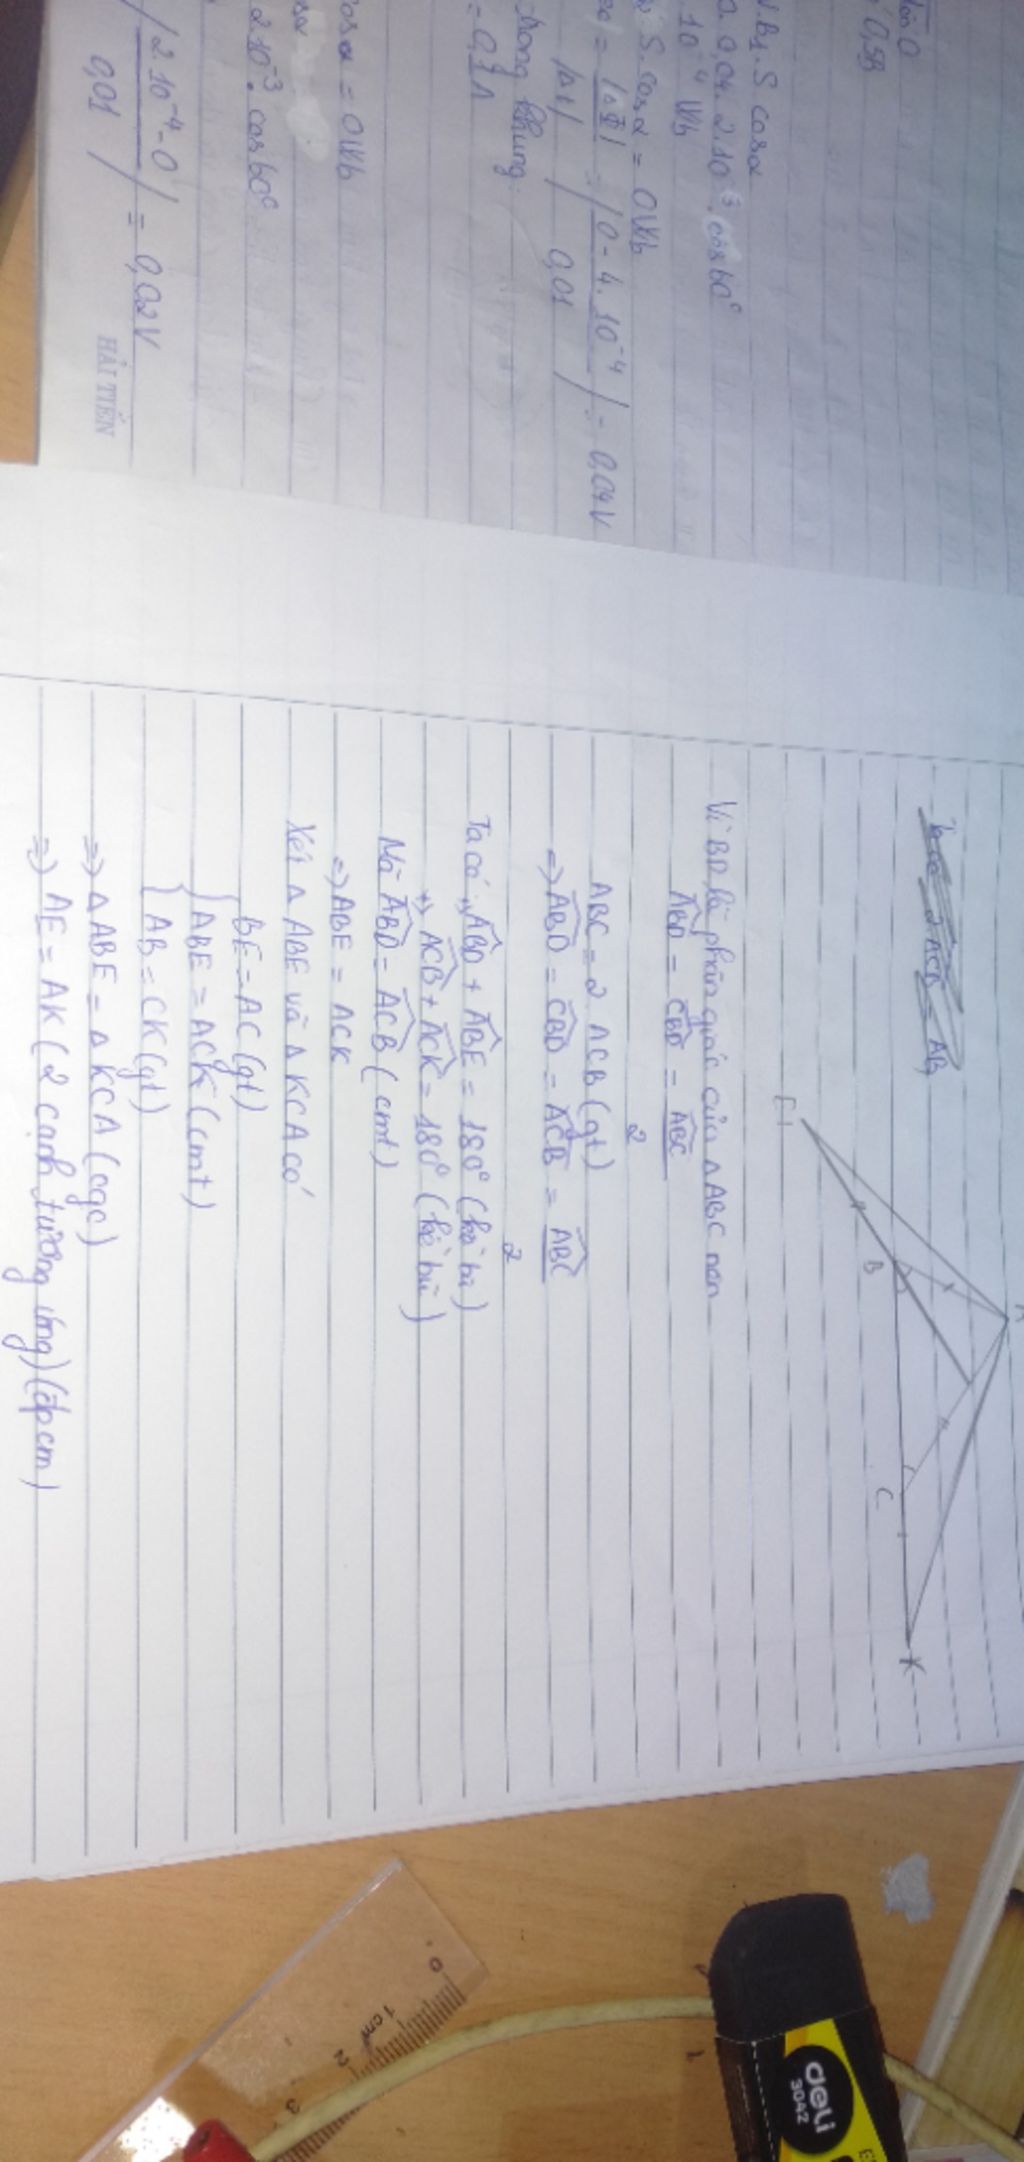 dòn O
0,5B
N.B1.S cosα
0,04.2.10⁻³.cos60°
10⁻⁴ Wb
S.cosα = 0Wb
= |ΔΦ| / |Δt| = |0-4.10⁻⁴ / 0,01| = 0,04V
trong khung
= 0,1A
cosα = 0Wb
2.10⁻³.cos60°
|2.10⁻⁴-0 / 0,01| = 0,02V
HẢI TIẾN
2 ACB = AB
A
E
B
C
K
Vì BD là phân giác của ΔABC nên
ABD = CBD = ABC / 2
ABC = 2 ACB (gt)
=> ABD = CBD = ACB = ABC / 2
Ta có: ABD + ABE = 180° (kề bù)
ACB + ACK = 180° (kề bù)
Mà ABD = ACB (cmt)
=> ABE = ACK
Xét Δ ABE và Δ KCA có
BE = AC (gt)
ABE = ACK (cmt)
AB = CK (gt)
=> Δ ABE = Δ KCA (cgc)
=> AE = AK (2 cạnh tương ứng) (đpcm)
0 1cm 2 3
deli
3042